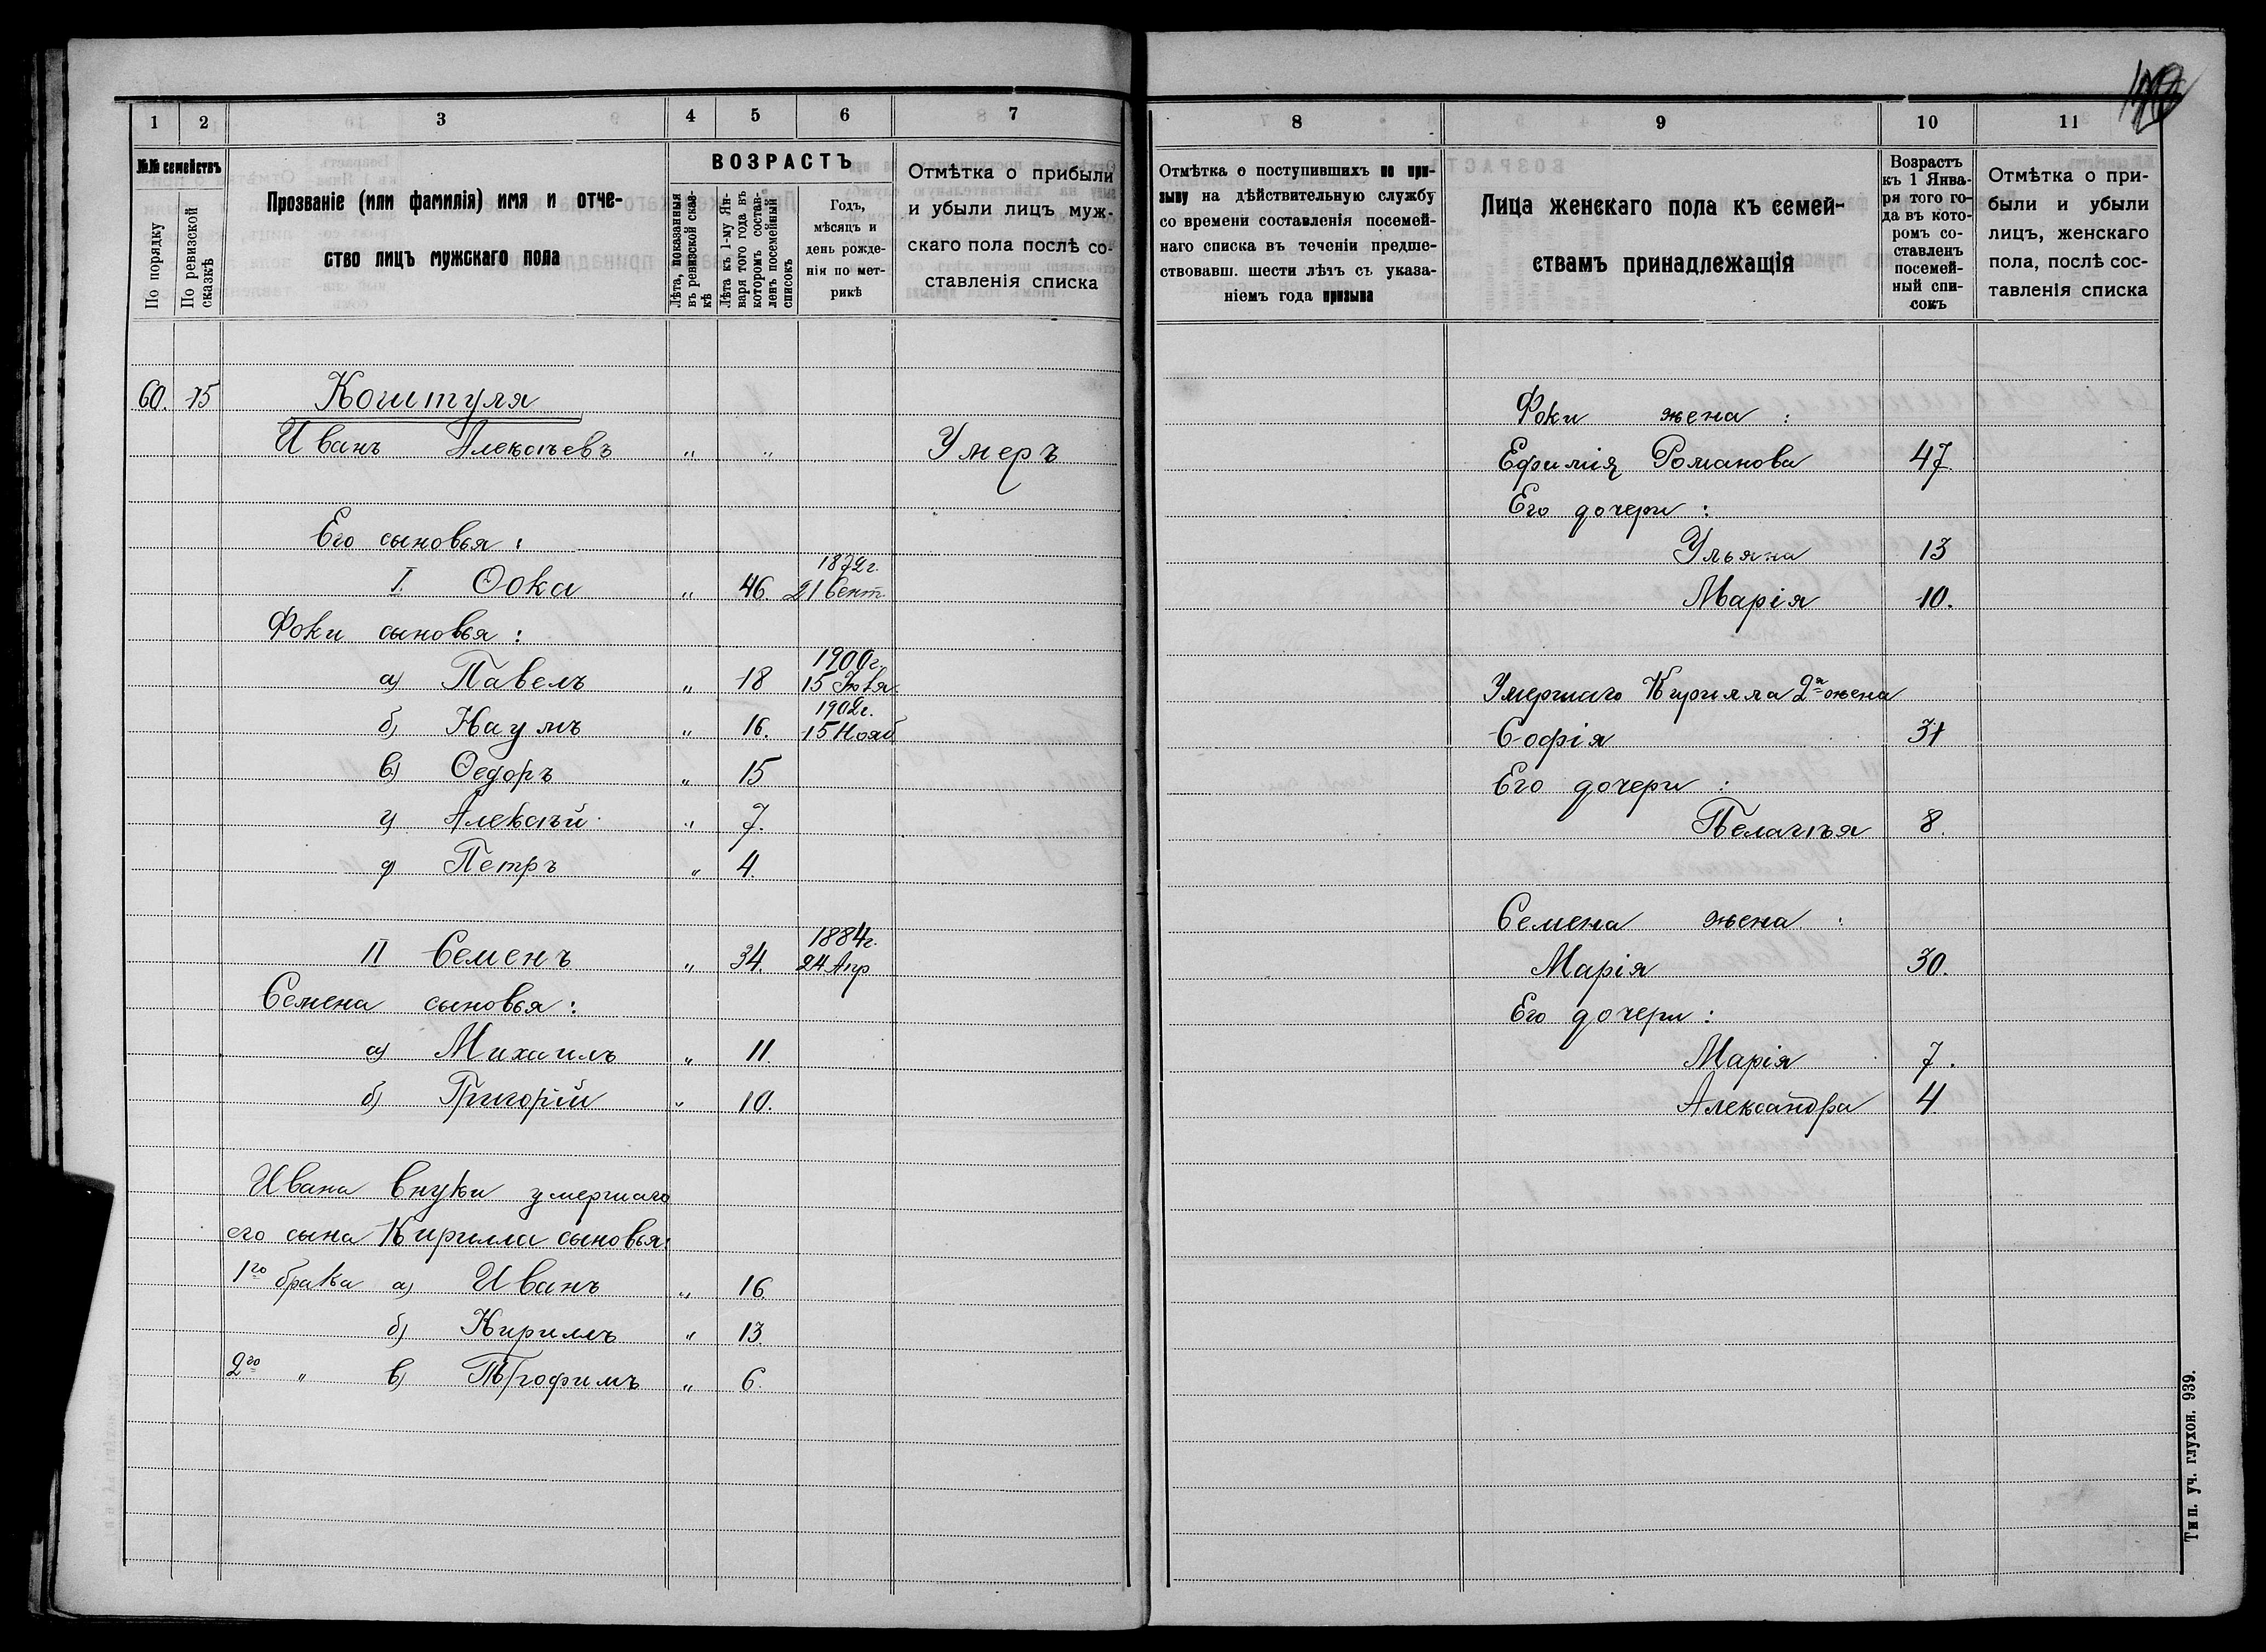 1 2 3 4 5 6 7
№№ семействъ
По порядку
По ревизской сказкѣ
Прозваніе (или фамилія) имя и отче-
ство лицъ мужскаго пола
ВОЗРАСТЪ
Лѣта, показанныя
въ ревизской сказ-
кѣ
Лѣта къ 1-му Ян-
варя того года въ
которомъ состав-
ленъ посемейный
списокъ
Годъ,
мѣсяцъ и
день рожде-
нія по мет-
рикѣ
Отмѣтка о прибыли
и убыли лицъ муж-
скаго пола послѣ со-
ставленія списка
60. 75 Коштуля
Иванъ Алексѣевъ " " Умеръ
Его сыновья:
1872г.
I. Ѳока " 46. 21 Сент.
Фоки сыновья:
1900г.
а) Павелъ " 18 15
1902г.
б) Наумъ " 16. 15 Нояб
в) Ѳедоръ " 15
г) Алексѣй " 7.
д) Петръ " 4.
1884г.
II Семенъ " 34. 24 Апр
Семена сыновья:
а) Михаилъ " 11.
б) Григорій " 10.
Ивана внуки умершаго
его сына Кирилла сыновья:
1го брака а) Иванъ " 16.
б) Кирилъ " 13.
2го " в) Трофимъ " 6.
8 9 10 11
Отмѣтка о поступившихъ по при-
зыву на дѣйствительную службу
со времени составленія посемей-
наго списка въ теченіи предше-
ствовавш. шести лѣтъ съ указа-
ніемъ года призыва
Лица женскаго пола къ семей-
ствамъ принадлежащія
Возрастъ
къ 1 Янва-
ря того го-
да въ кото-
ромъ со-
ставленъ
посемей-
ный спи-
сокъ
Отмѣтка о при-
были и убыли
лицъ, женскаго
пола, послѣ сос-
тавленія списка
Фоки жена:
Ефимія Романова 47.
Его дочери:
Ульяна 13
Марія 10.
Умершаго Кирилла 2я жена
Софія 31
Его дочери:
Пелагѣя 8.
Семена жена:
Марія 30.
Его дочери:
Марія 7.
Александра 4
Тип. уч. глухон. 939.